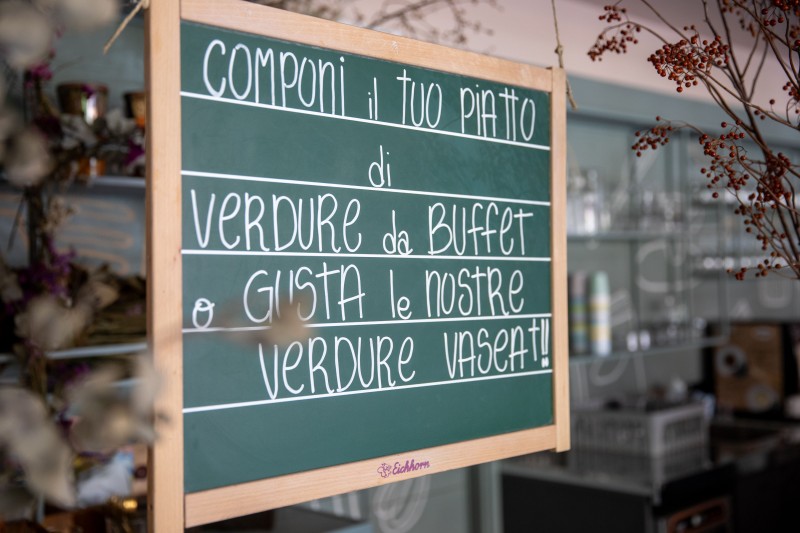 COMPONI il TUO PIATTO
di
VERDURE da BUFFET
o GUSTA le NOSTRE
VERDURE VASEAT!!
Eichhorn